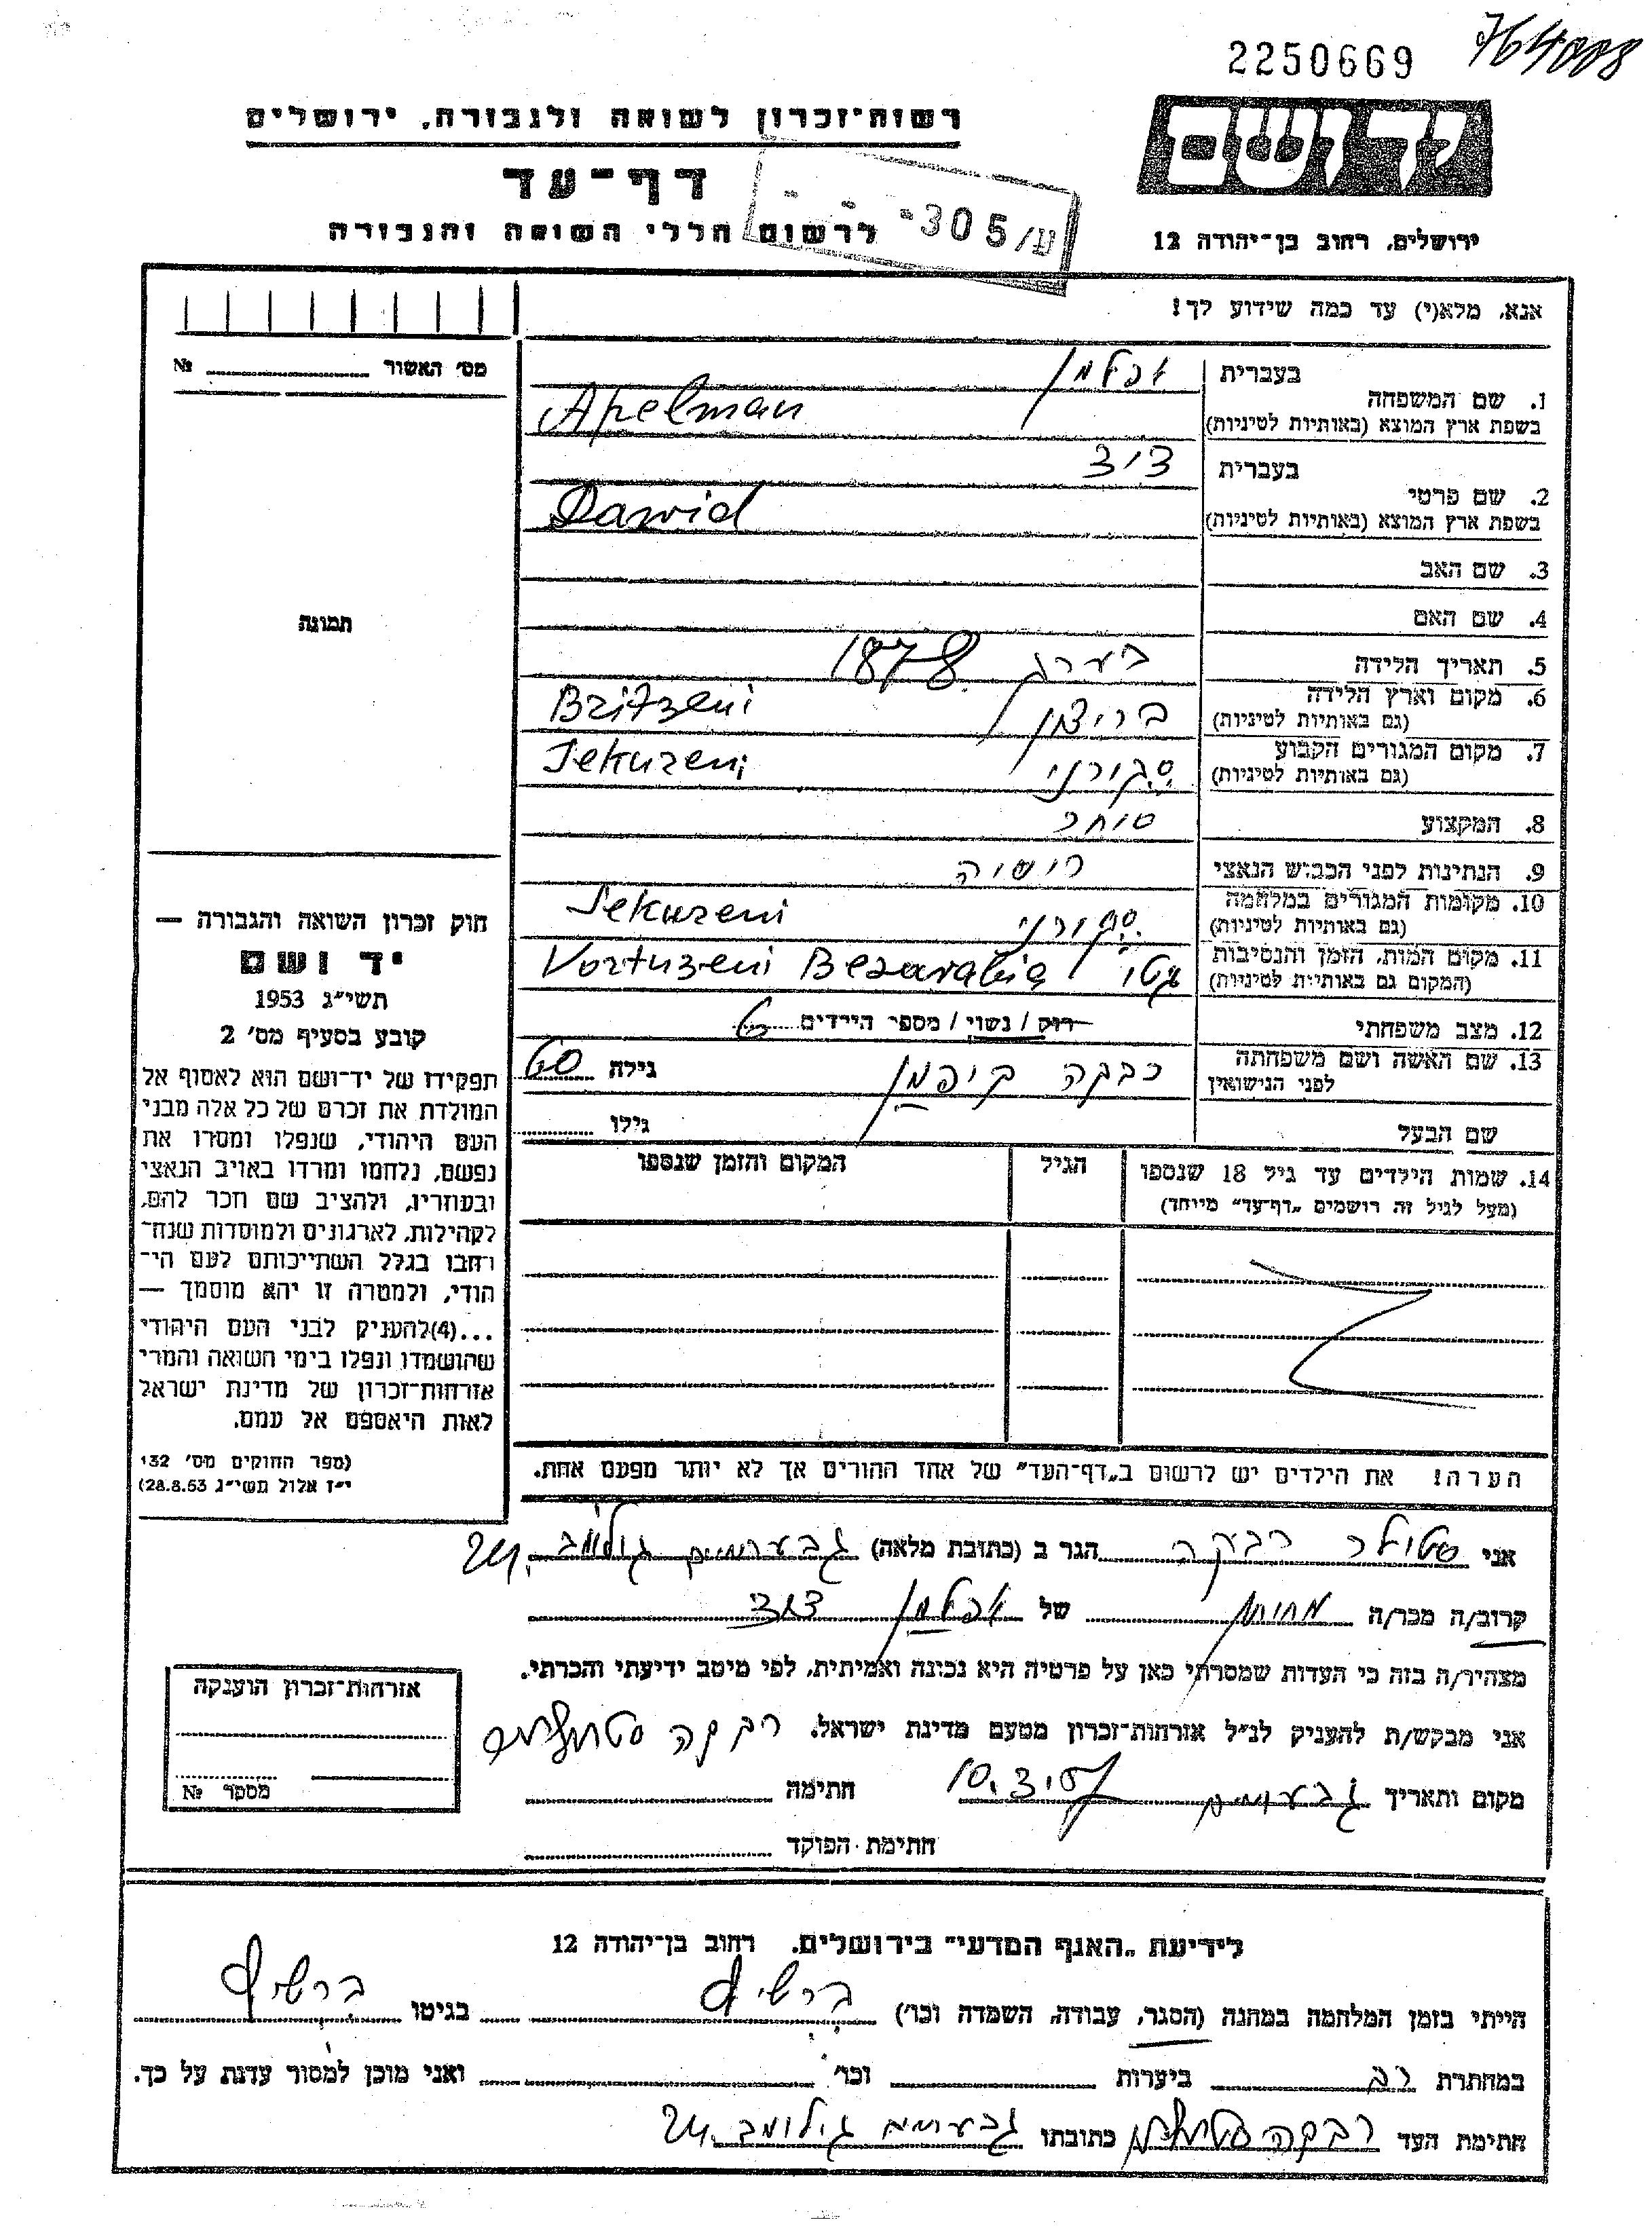 2250669 764008
יד ושם
רשות־זכרון לשואה ולגבורה, ירושלים
דף־עד
לרשום חללי השואה והגבורה
ע/305
ירושלים, רחוב בן־יהודה 12
אנא, מלא(י) עד כמה שידוע לך!
מס׳ האשור № 
תמונה
1. שם המשפחה
בעברית אפלמן
בשפת ארץ המוצא (באותיות לטיניות) Apelman
2. שם פרטי
בעברית דוד
בשפת ארץ המוצא (באותיות לטיניות) Dawid
3. שם האב
4. שם האם
5. תאריך הלידה בערך 1878
6. מקום וארץ הלידה
(גם באותיות לטיניות) בריצן Britzeni
7. מקום המגורים הקבוע
(גם באותיות לטיניות) סקורני Sekureni
8. המקצוע סוחר
9. הנתינות לפני הכבוש הנאצי רוסיה
10. מקומות המגורים במלחמה
(גם באותיות לטיניות) סקורני Sekureni
11. מקום המות, הזמן והנסיבות
(המקום גם באותיות לטיניות) גטו Vortuzeni Bezarabia
12. מצב משפחתי רוק / נשוי / מספר הילדים 6
13. שם האשה ושם משפחתה
לפני הנישואין רבקה קיפמן גילה 60
שם הבעל גילו
14. שמות הילדים עד גיל 18 שנספו הגיל המקום והזמן שנספו
(מעל לגיל זה רושמים „דף־עד" מיוחד)
הערה! את הילדים יש לרשום ב„דף־העד" של אחד ההורים אך לא יותר מפעם אחת.
חוק זכרון השואה והגבורה —
יד ושם
תשי״ג 1953
קובע בסעיף מס׳ 2
תפקידו של יד־ושם הוא לאסוף אל
המולדת את זכרם של כל אלה מבני
העם היהודי, שנפלו ומסרו את
נפשם, נלחמו ומרדו באויב הנאצי
ובעוזריו, ולהציב שם וזכר להם,
לקהילות, לארגונים ולמוסדות שנח־
רבו בגלל השתייכותם לעם הי־
הודי, ולמטרה זו יהא מוסמך —
...(4)להעניק לבני העם היהודי
שהושמדו ונפלו בימי השואה והמרי
אזרחות־זכרון של מדינת ישראל
לאות היאספם אל עמם.
(ספר החוקים מס׳ 132
י״ז אלול תשי״ג 28.8.53)
אני סטולר רבקה הגר ב (כתובת מלאה) גבעתיים גולומב 24
קרוב/ה מכר/ה של אפלמן דוד
מצהיר/ה בזה כי העדות שמסרתי כאן על פרטיה היא נכונה ואמיתית, לפי מיטב ידיעתי והכרתי.
אני מבקש/ת להעניק לנ״ל אזרחות־זכרון מטעם מדינת ישראל. רבקה
מקום ותאריך גבעתיים חתימה
חתימת הפוקד
אזרחות־זכרון הוענקה
מספר №
לידיעת „האגף המדעי" בירושלים, רחוב בן־יהודה 12
הייתי בזמן המלחמה במחנה (הסגר, עבודה, השמדה וכו׳) ברשיד בגיטו ברשיד
במחתרת ביערות וכו׳ ואני מוכן למסור עדות על כך.
חתימת העד רבקה כתובתו גבעתיים גולומב 24